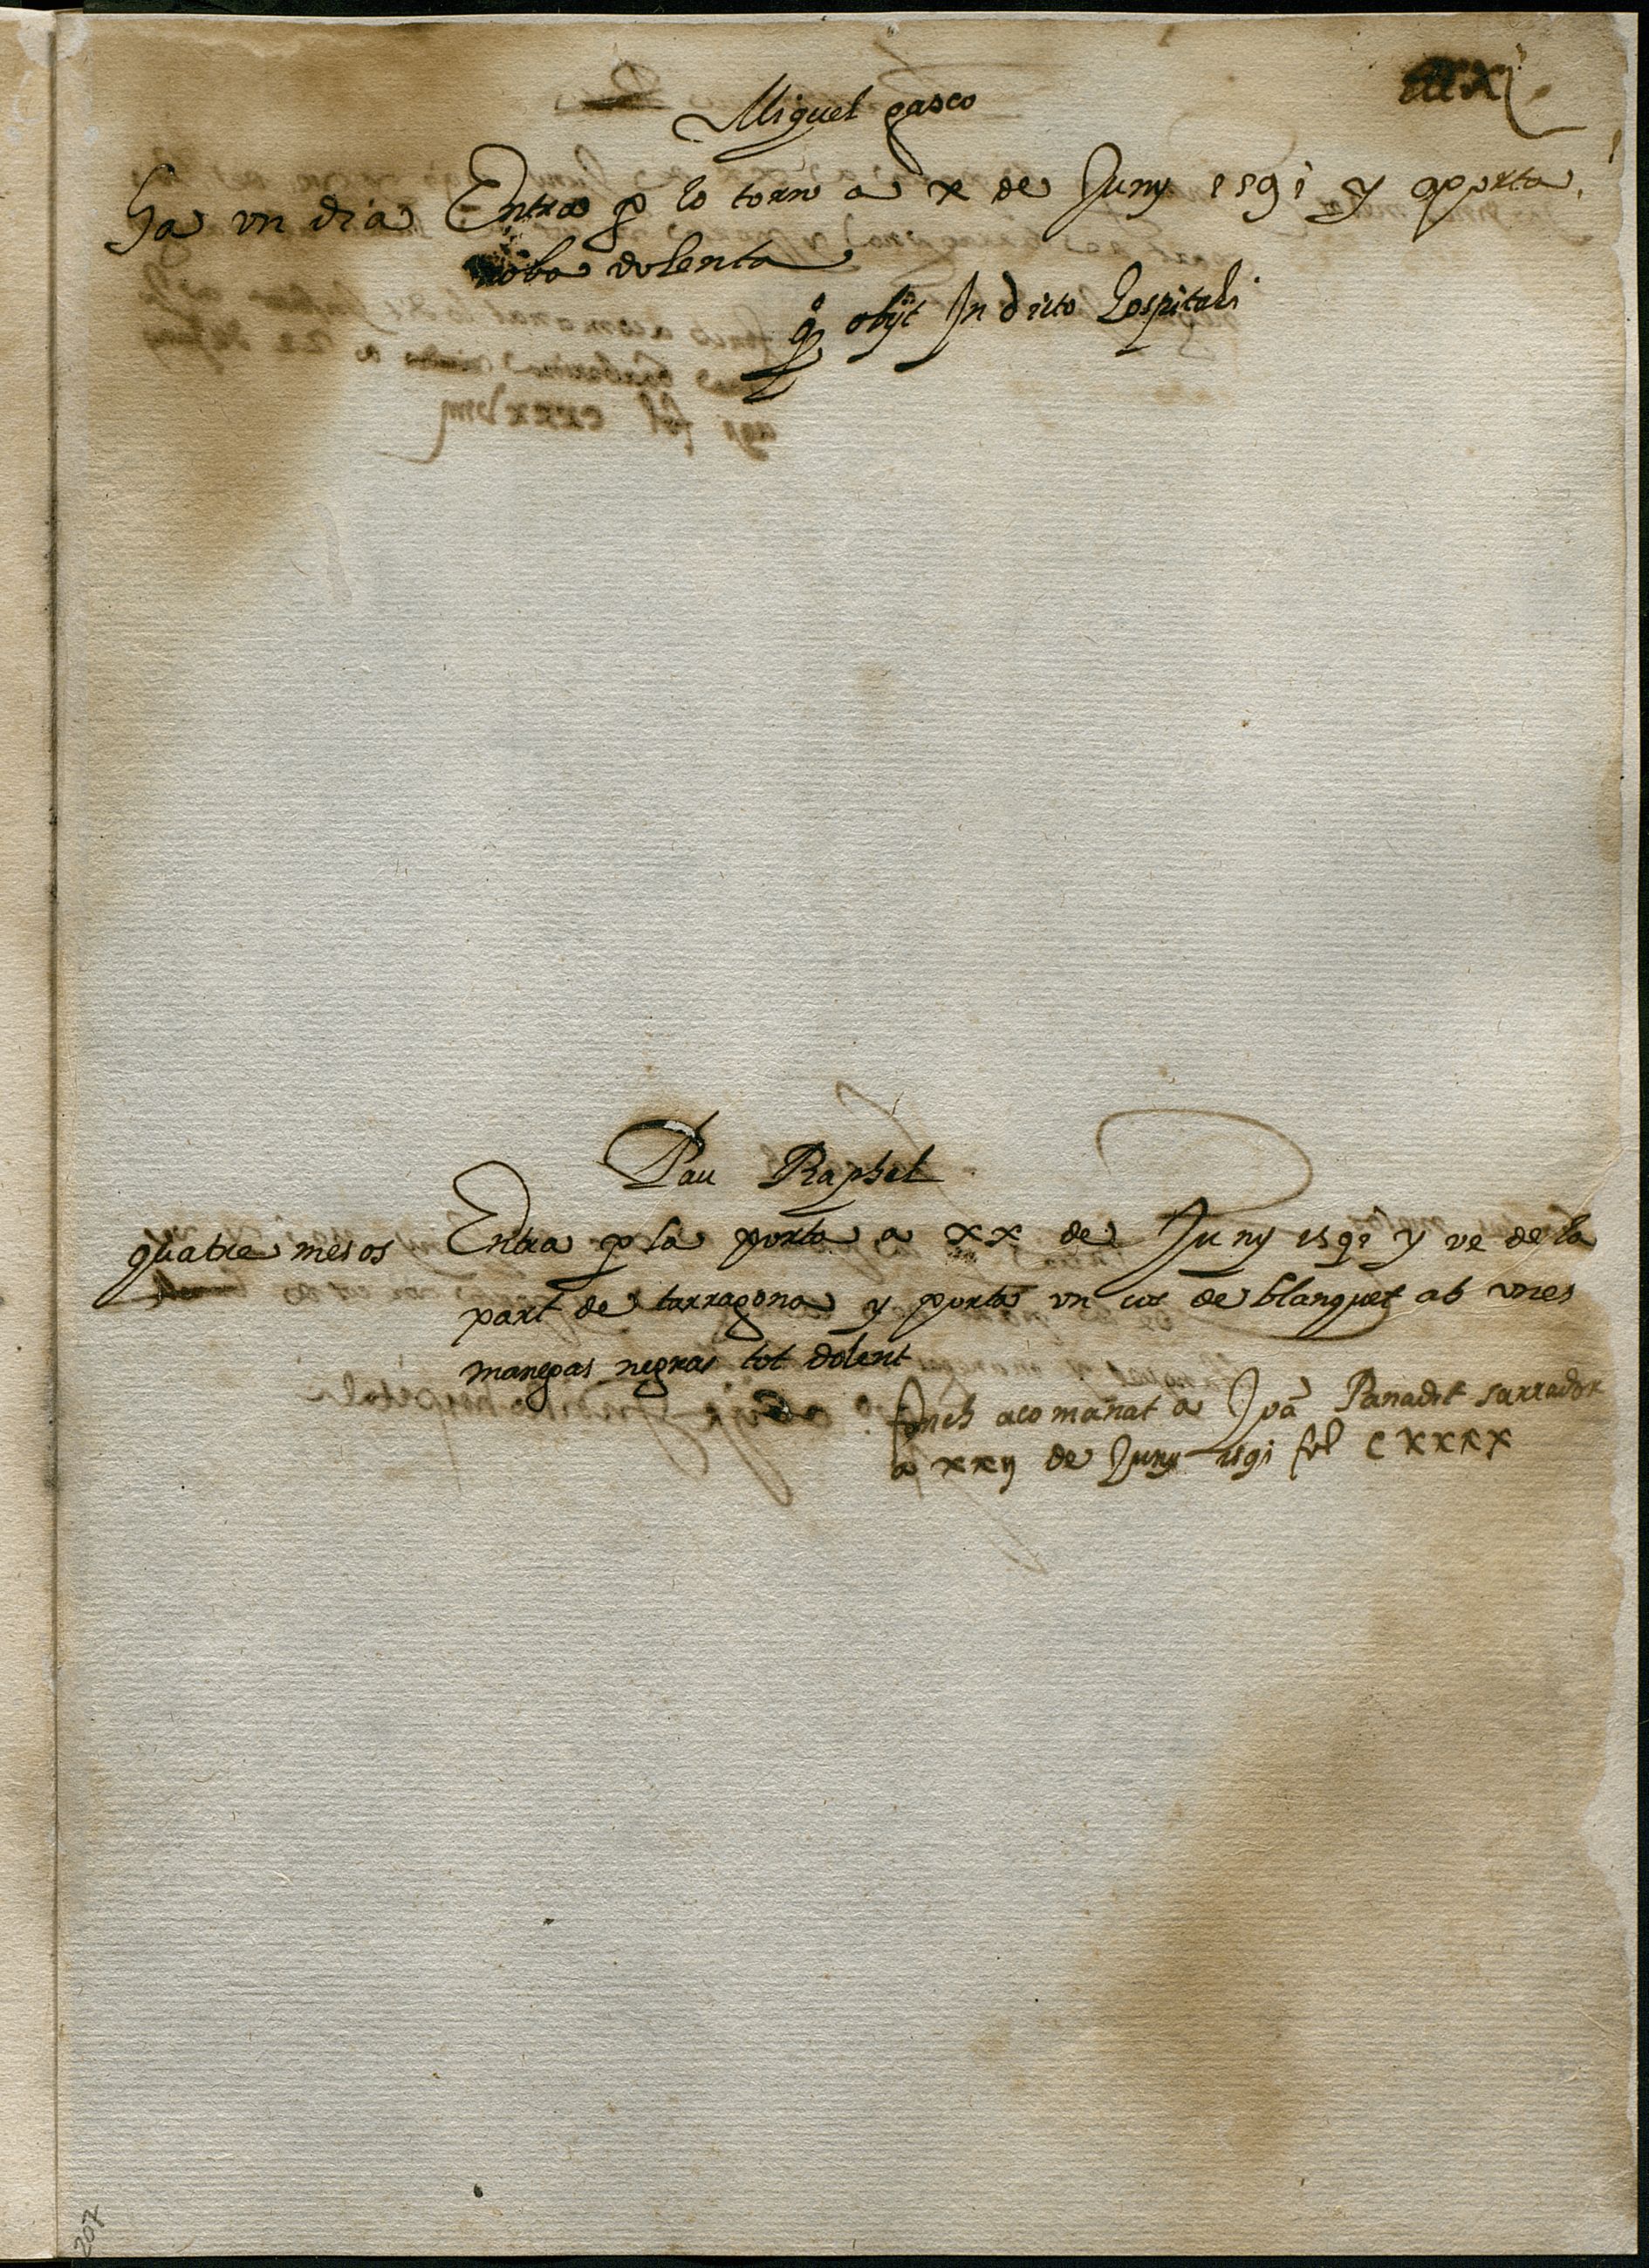 Miguel gasco
ha un dia Entra p lo torn a x de Juny 1591 y aporta
roba dolenta
obijt In dicto hospitali
Pau Raphel
quatre mesos Entra p la porta a xx de Juny 1591 y ve de la
part de tarragona y porta un cos de blanquet ab unes
manegas negras tot dolent
fonch acomanat a Joā Panadit sarrador
a xxij de Juny 1591 fol cxxxx
207